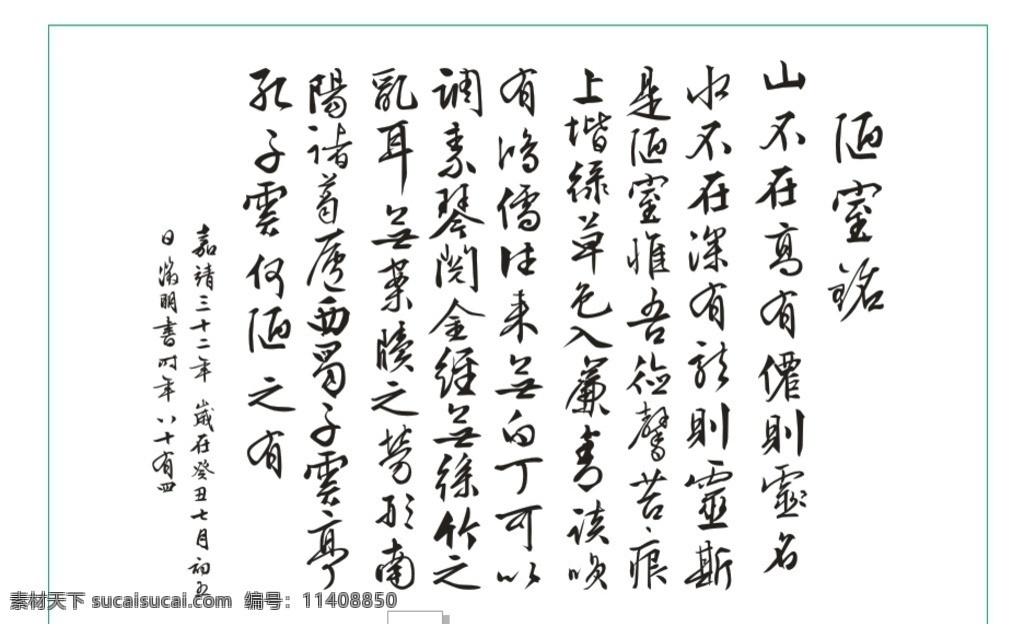 陋室銘
山不在高有僊則靈名
水不在深有龍則靈斯
是陋室惟吾德馨苔痕
上堦緑草色入簾青談咲
有鴻儒往来無白丁可以
調素琴閱金經無絲竹之
亂耳無案牘之勞形南
陽諸葛廬西蜀子雲亭
孔子雲何陋之有
嘉靖三十二年 歲在癸丑七月初五
日 徵明書时年八十有四
素材天下 sucaisucai.com 编号：11408850